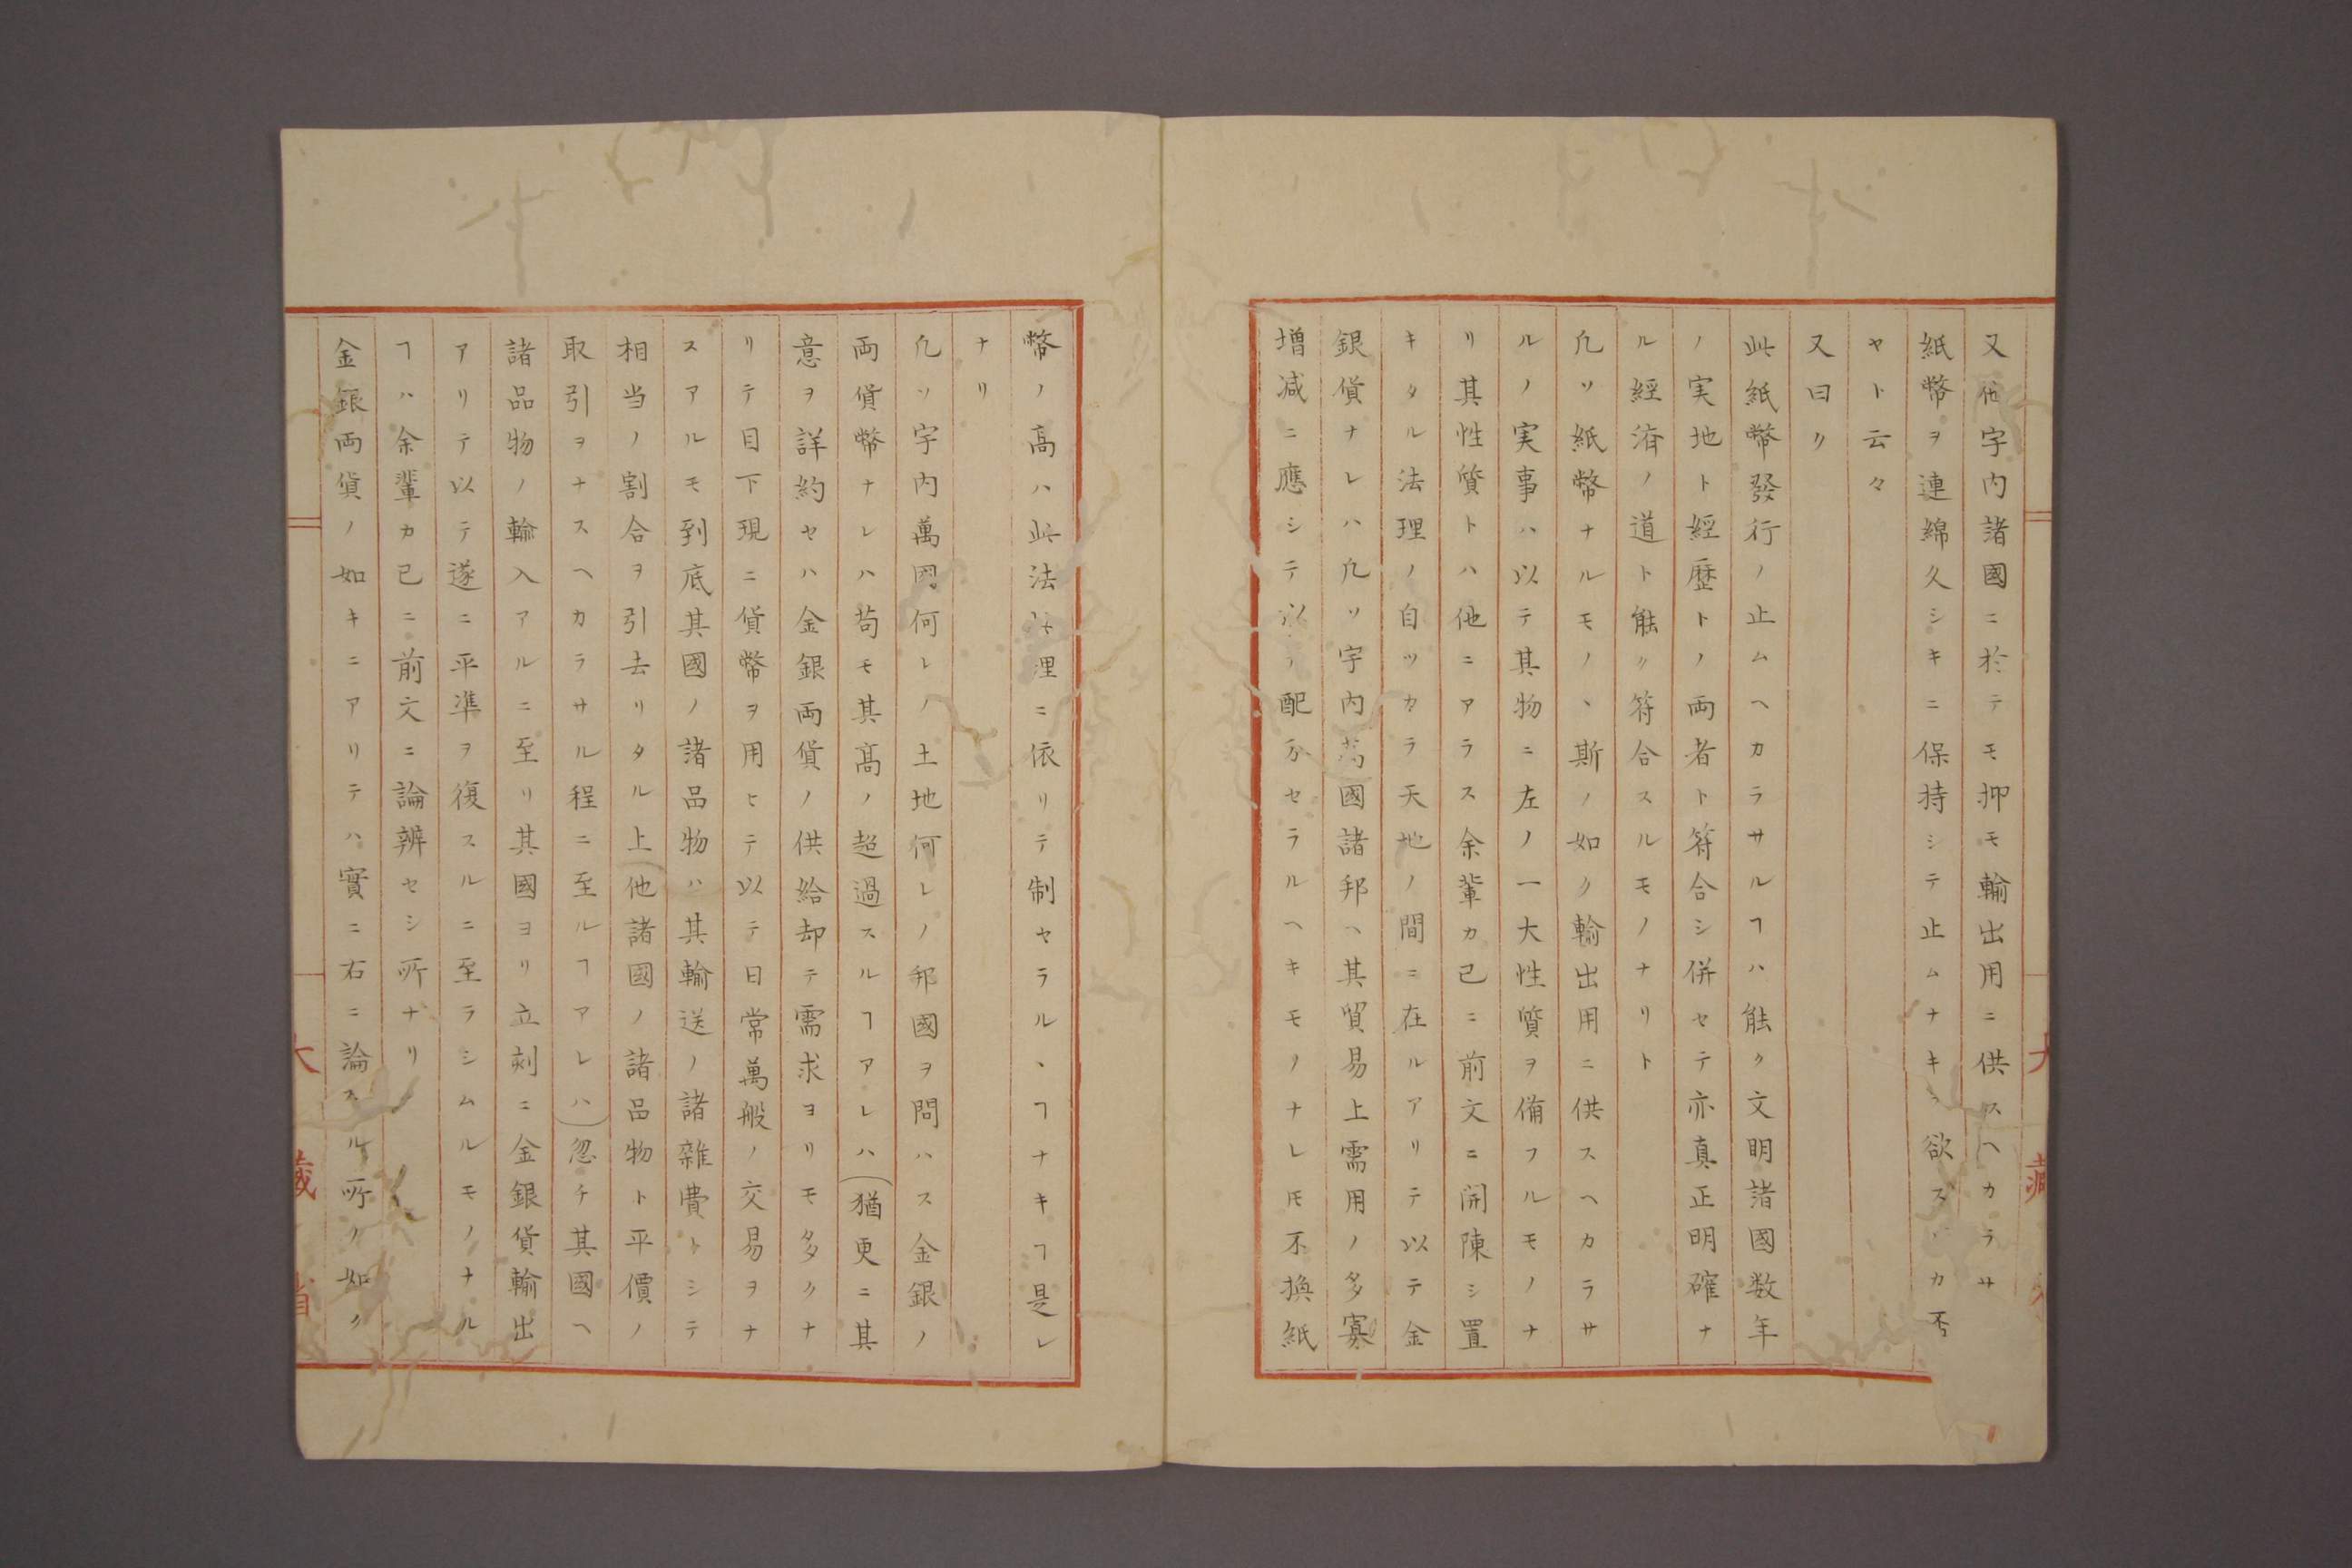 又他宇内諸國ニ於テモ抑モ輸出用ニ供スヘカラサ
紙幣ヲ連綿久シキニ保持シテ止ムナキヲ欲スルカ否
ヤト云々
又曰ク
此紙幣發行ノ止ムヘカラサルヿハ能ク文明諸國数年
ノ実地ト經歴トノ両者ト符合シ併セテ亦真正明確ナ
ル經済ノ道ト能ク符合スルモノナリト
凢ソ紙幣ナルモノヽ斯ノ如ク輸出用ニ供スヘカラサ
ルノ実事ハ以テ其物ニ左ノ一大性質ヲ備フルモノナ
リ其性質トハ他ニアラス余輩カ已ニ前文ニ開陳シ置
キタル法理ノ自ツカラ天地ノ間ニ在ルアリテ以テ金
銀貨ナレハ凢ソ宇内萬國諸邦ヘ其貿易上需用ノ多寡
増减ニ應シテ以テ配分セラルヘキモノナレㇳモ不換紙
幣ノ高ハ此法理ニ依リテ制セラルヽヿナキヿ是レ
ナリ
凢ソ宇内萬國何レノ土地何レノ邦國ヲ問ハス金銀ノ
両貨幣ナレハ苟モ其高ノ超過スルヿアレハ(猶更ニ其
意ヲ詳約セハ金銀両貨ノ供給却テ需求ヨリモ多クナ
リテ目下現ニ貨幣ヲ用ヒテ以テ日常萬般ノ交易ヲナ
スアルモ到底其國ノ諸品物ハ其輸送ノ諸雜費トシテ
相当ノ割合ヲ引去リタル上(他諸國ノ諸品物ト平價ノ
取引ヲナスヘカラサル程ニ至ルヿアレハ)忽チ其國ヘ
諸品物ノ輸入アルニ至リ其國ヨリ立刻ニ金銀貨輸出
アリテ以テ遂ニ平凖ヲ復スルニ至ラシムルモノナル
ヿハ余輩カ已ニ前文ニ論辨セシ所ナリ
金銀両貨ノ如キニアリテハ實ニ右ニ論スル所ノ如ク
大藏省